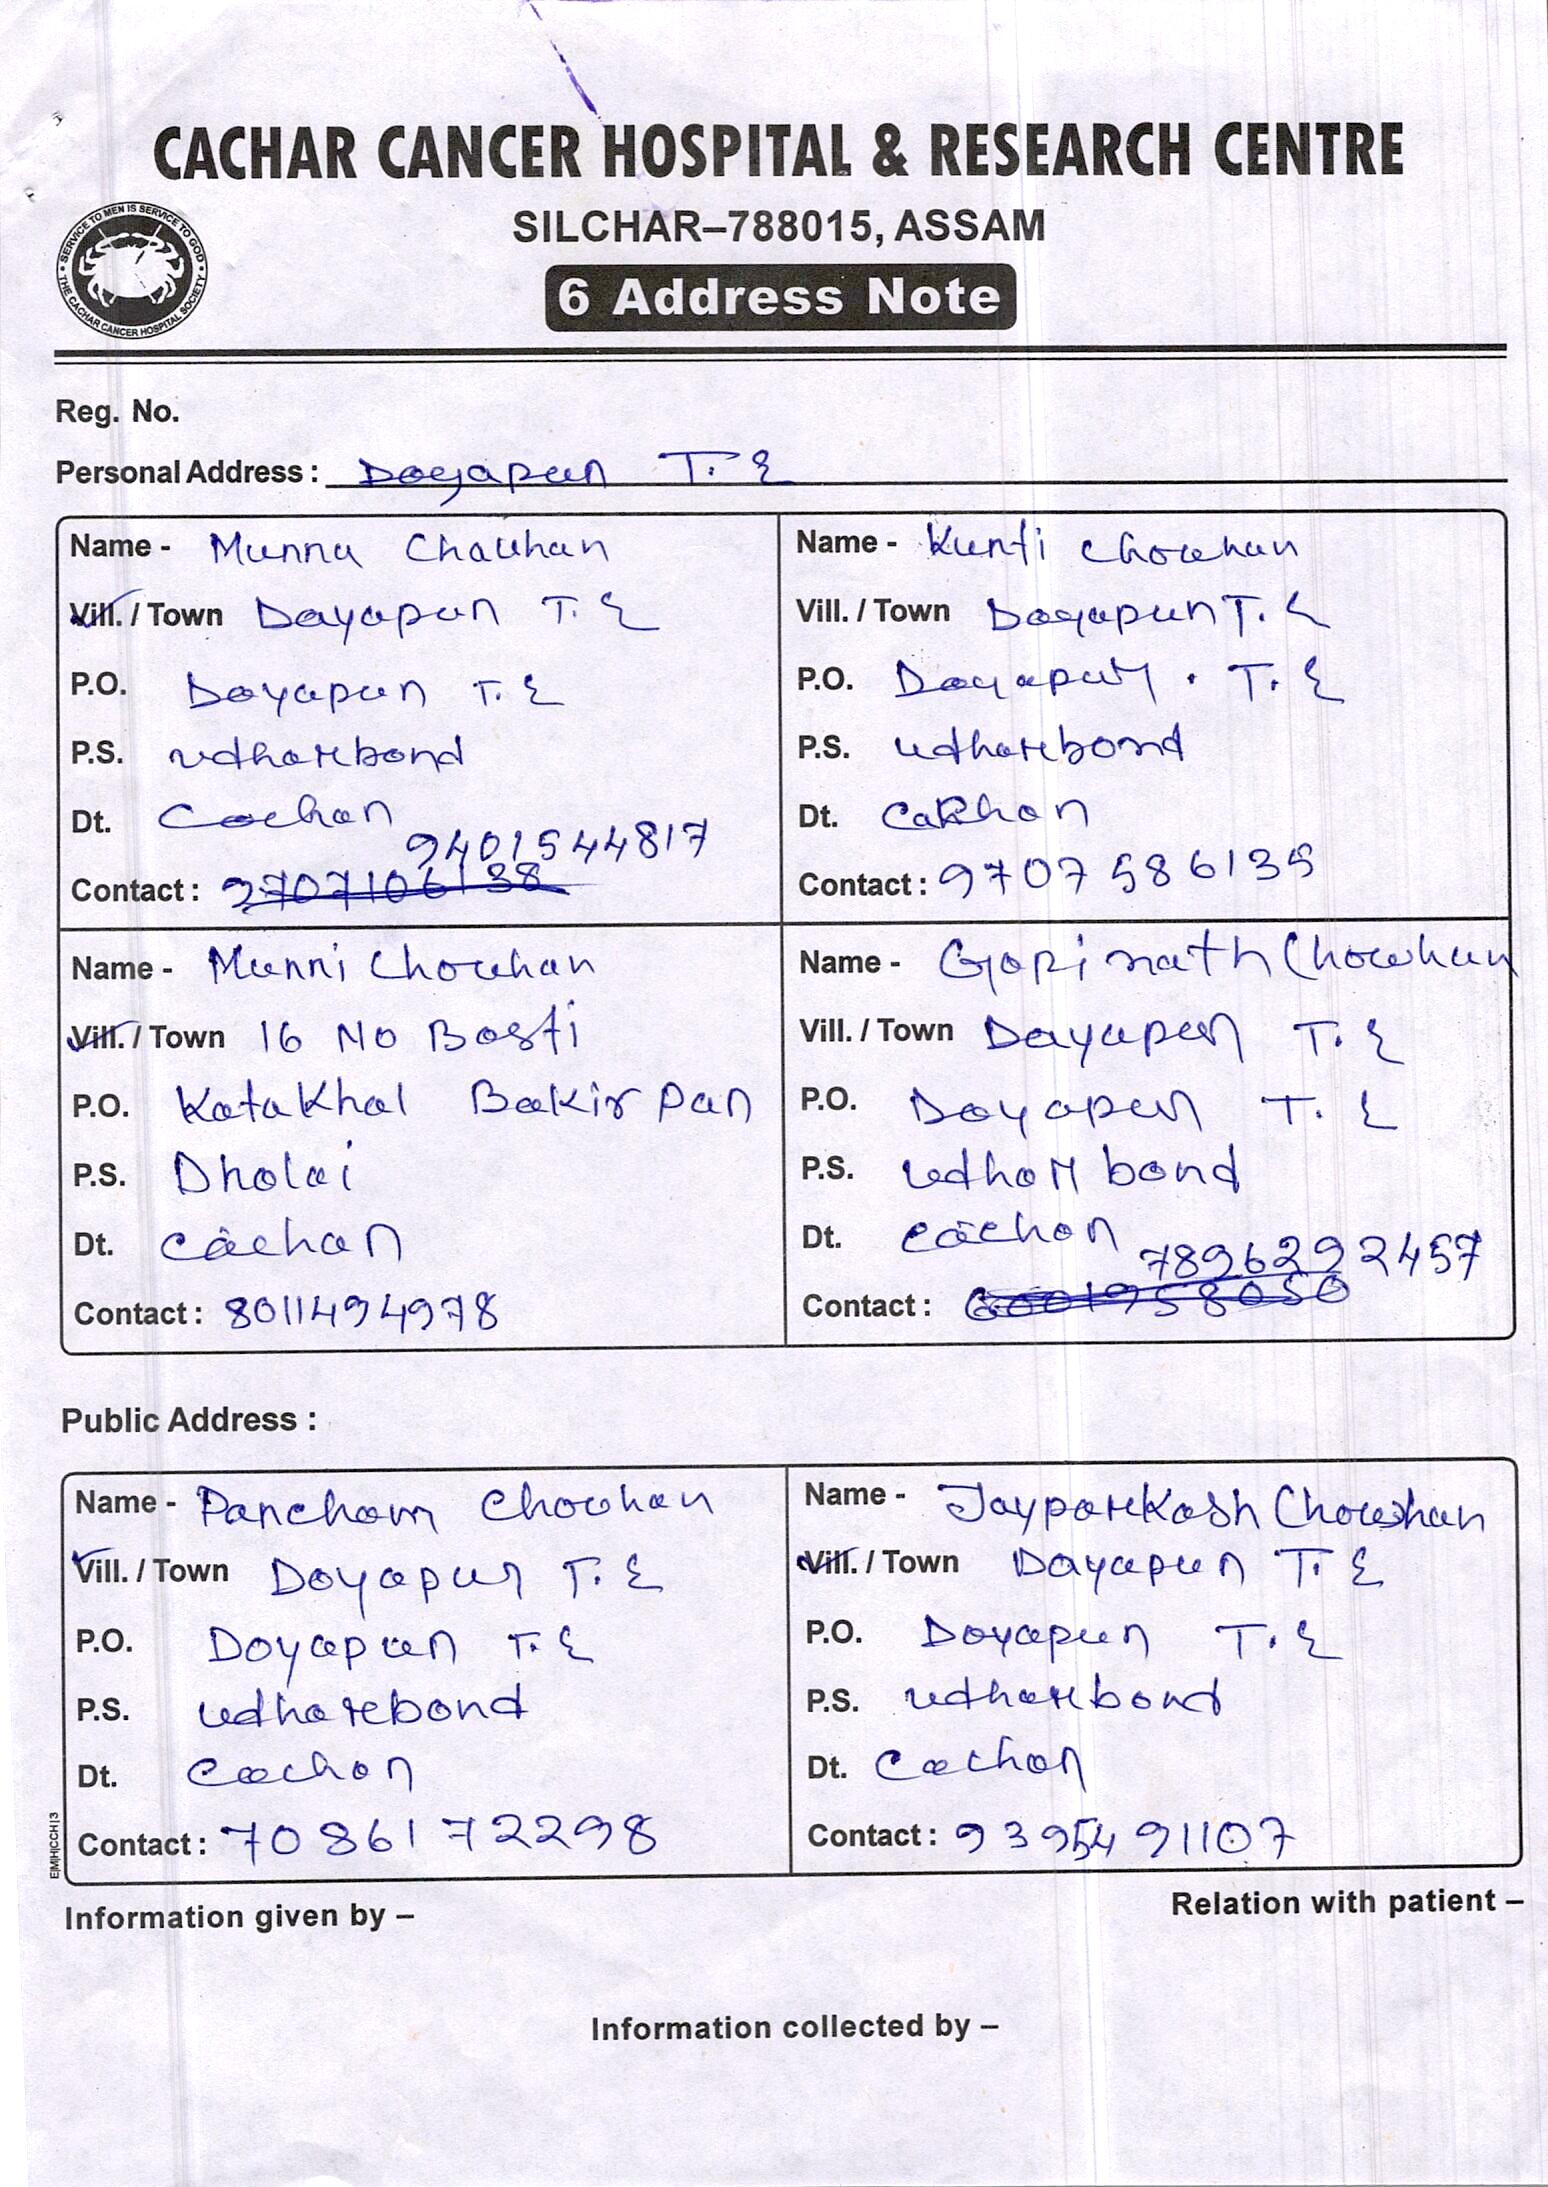 CACHAR CANCER HOSPITAL & RESEARCH CENTRE
SERVICE TO MEN IS SERVICE TO GOD
THE CACHAR CANCER HOSPITAL SOCIETY
SILCHAR–788015, ASSAM
6 Address Note
Reg. No.
Personal Address : Doyapur T. E
Name - Munna Chauhan
Vill. / Town Dayapur T. E
P.O. Doyapur T. E
P.S. udharbond
Dt. Cachar
9401544817
Contact : 9707106138
Name - Kunti Chouhan
Vill. / Town Doyapur T. E
P.O. Doyapur . T. E
P.S. udharbond
Dt. Cachar
Contact : 9707586135
Name - Munni Chouhan
Vill. / Town 16 No Basti
P.O. Katakhal Bakir par
P.S. Dholai
Dt. Cachar
Contact : 8011494978
Name - Gopinath Chouhan
Vill. / Town Dayapur T. E
P.O. Doyapur T. E
P.S. udharbond
Dt. Cachar
7896292457
Contact : 6001958050
Public Address :
Name - Pancham Chouhan
Vill. / Town Doyapur T. E
P.O. Doyapur T. E
P.S. udharbond
Dt. Cachar
Contact : 7086172298
Name - Jayparkash Chouhan
Vill. / Town Dayapur T. E
P.O. Doyapur T. E
P.S. udharbond
Dt. Cachar
Contact : 9395491107
E|M|H|CCH|3
Information given by –
Relation with patient –
Information collected by –